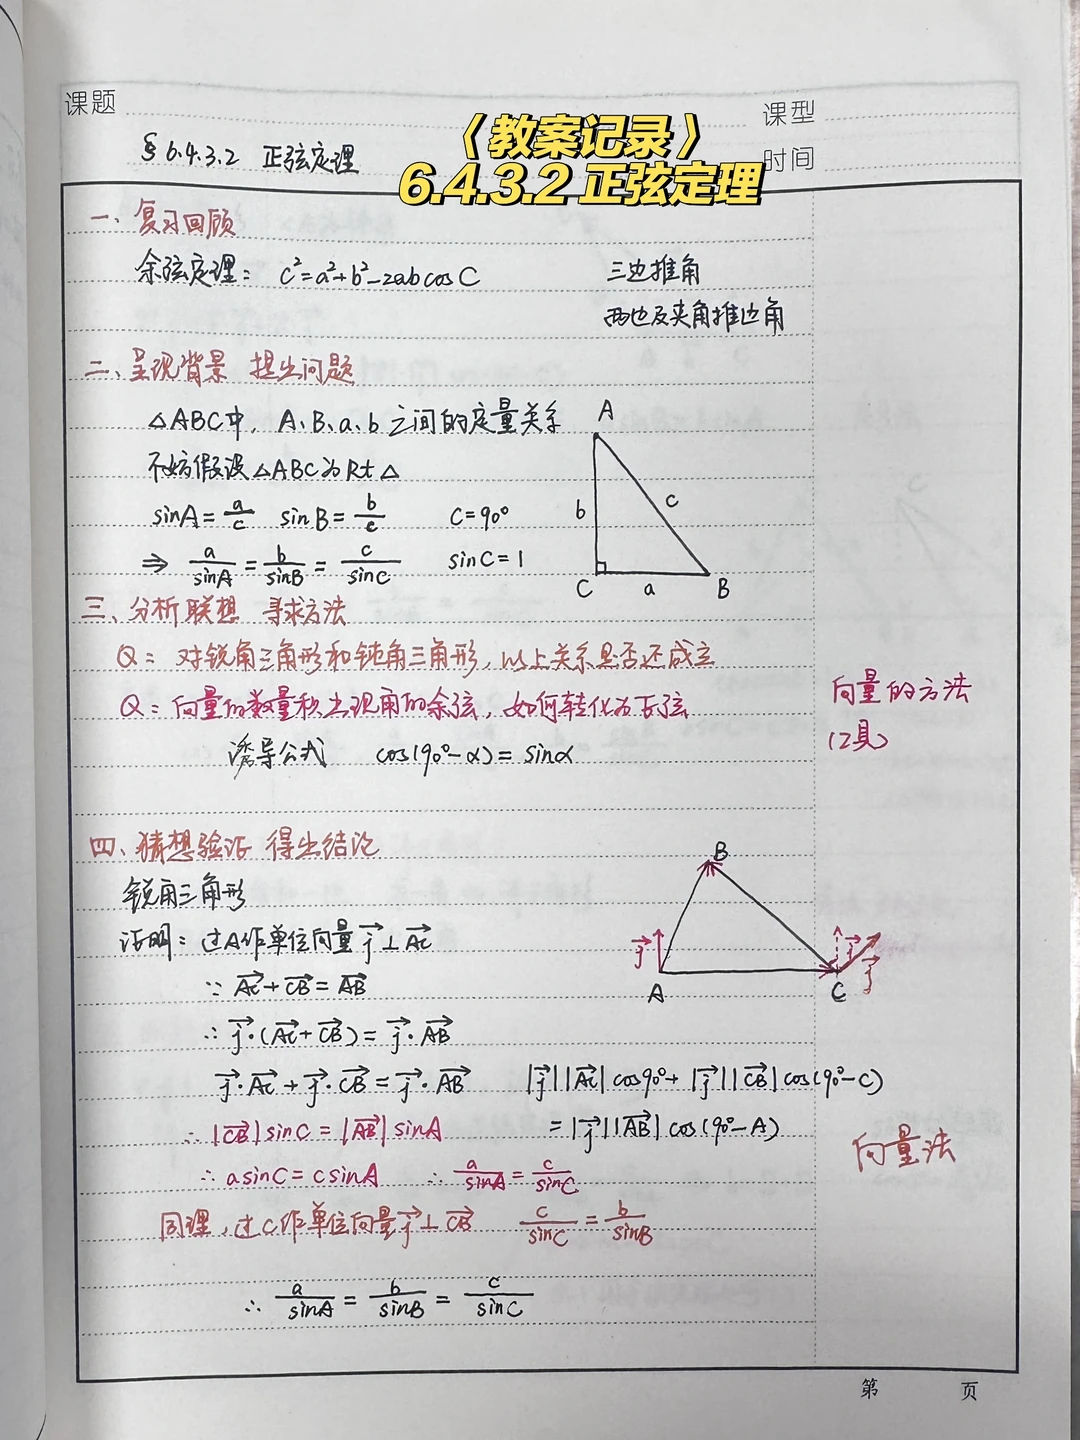 课题
课型
《教案记录》
§ 6.4.3.2 正弦定理
时间
6.4.3.2 正弦定理
一、复习回顾
余弦定理: c²=a²+b²-2abcosC 三边推角
两边及夹角推边角
二、呈现背景 提出问题
△ABC中, A、B、a、b 之间的定量关系
不妨假设△ABC为Rt△
sinA=a/c sinB=b/c C=90°
⇒ a/sinA = b/sinB = c/sinC sinC=1
A
b
c
C
a
B
三、分析联想 寻求方法
Q: 对锐角三角形和钝角三角形, 以上关系是否还成立
Q: 向量的数量积出现角的余弦, 如何转化为正弦
向量的方法
(工具)
诱导公式 cos(90°-α)=sinα
四、猜想验证 得出结论
锐角三角形
证明: 过A作单位向量j⃗⊥AC⃗
∵ AC⃗+CB⃗=AB⃗
∴ j⃗·(AC⃗+CB⃗)=j⃗·AB⃗
j⃗·AC⃗+j⃗·CB⃗=j⃗·AB⃗ |j⃗||AC⃗|cos90°+|j⃗||CB⃗|cos(90°-C)
∴ |CB⃗|sinC=|AB⃗|sinA =|j⃗||AB⃗|cos(90°-A)
∴ asinC=csinA ∴ a/sinA = c/sinC
同理, 过C作单位向量j⃗⊥CB⃗ c/sinC = b/sinB
∴ a/sinA = b/sinB = c/sinC
B
j⃗
A
C
j⃗
j⃗
向量法
第 页